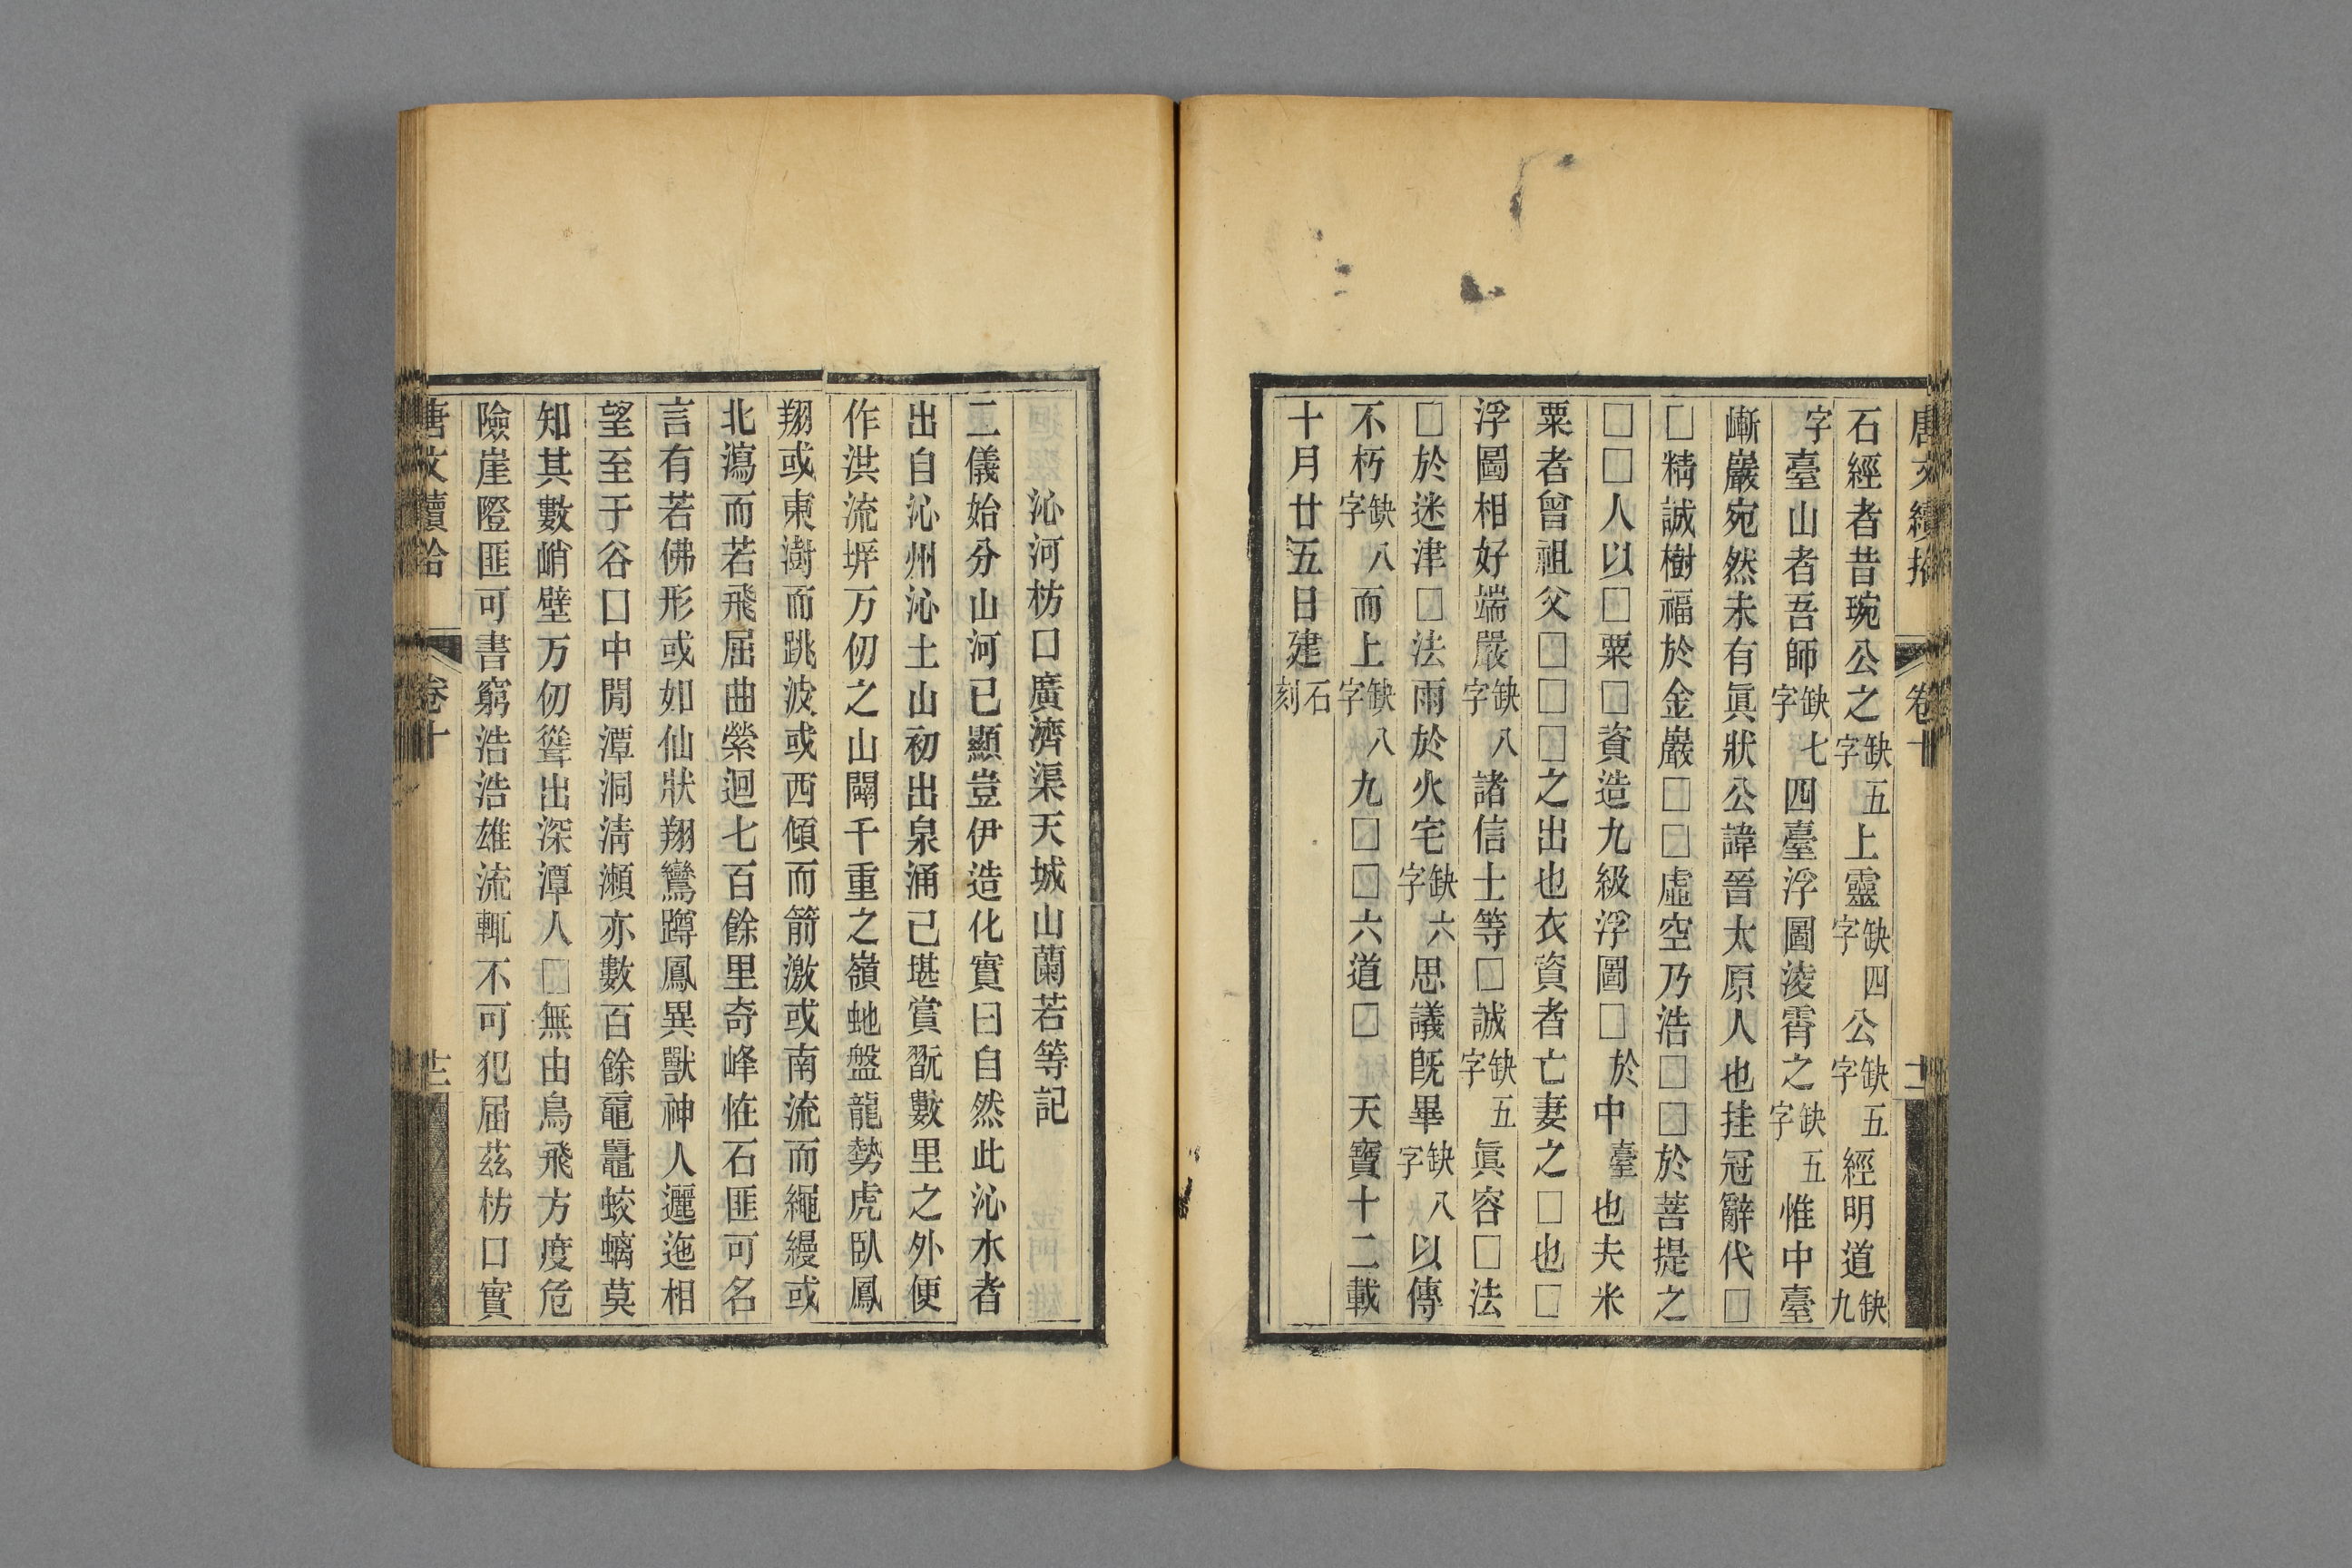 唐文續拾 卷十
石經者昔琬公之缺五字上靈缺四字公缺五字經明道缺九
字臺山者吾師缺七字四臺浮圖淩霄之缺五字惟中臺
嶃巖宛然未有眞狀公諱晉太原人也挂冠辭代□
□精誠樹福於金巖□□虛空乃浩□□於菩提之
□□人以□粟□資造九級浮圖□於中臺也夫米
粟者曾祖父□□□之出也衣資者亡妻之□也□
浮圖相好端嚴缺八字諸信士等□誠缺五字眞容□法
□於迷津□法雨於火宅缺六字思議旣畢缺八字以傳
不朽缺八字而上缺八字九□□六道□ 天寶十二載
十月廿五日建石刻
沁河枋口廣濟渠天城山蘭若等記
二儀始分山河已顯豈伊造化實曰自然此沁水者
出自沁州沁土山初出泉涌已堪賞翫數里之外便
作洪流塀万仞之山闢千重之嶺虵盤龍勢虎臥鳳
翔或東澍而跳波或西傾而箭激或南流而繩縵或
北瀉而若飛屈曲縈迴七百餘里奇峰恠石匪可名
言有若佛形或如仙狀翔鸞蹲鳳異獸神人邐迤相
望至于谷口中閒潭洞淸瀨亦數百餘黿鼉蛟螭莫
知其數峭壁万仞聳出深潭人□無由鳥飛方度危
險崖隥匪可書窮浩浩雄流輒不可犯届茲枋口實
唐文續拾 卷十